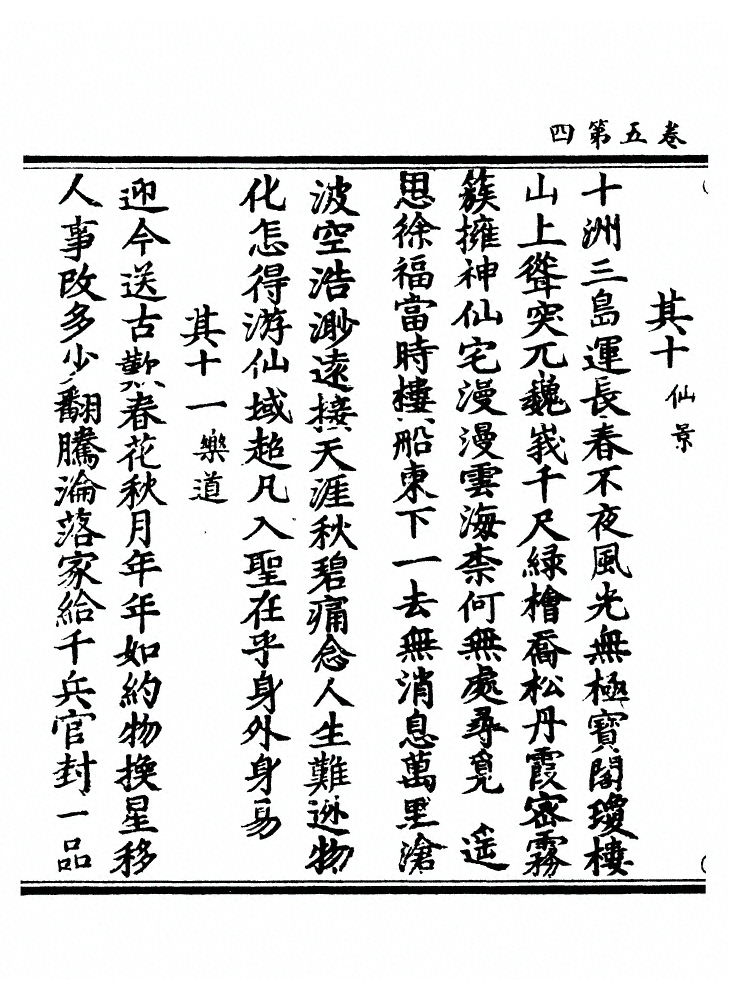 卷五第四
其十 仙景
十洲三島運長春不夜風光無極寶閣瓊樓
山上聳突兀巍峩千尺綠檜喬松丹霞密霧
簇擁神仙宅漫漫雲海柰何無處尋覓 遥
思徐福當時樓船東下一去無消息萬里滄
波空浩渺遠接天涯秋碧痛念人生難逃物
化怎得游仙域超凡入聖在乎身外身易
其十一 樂道
迎今送古歎春花秋月年年如約物換星移
人事改多少翻騰淪落家給千兵官封一品